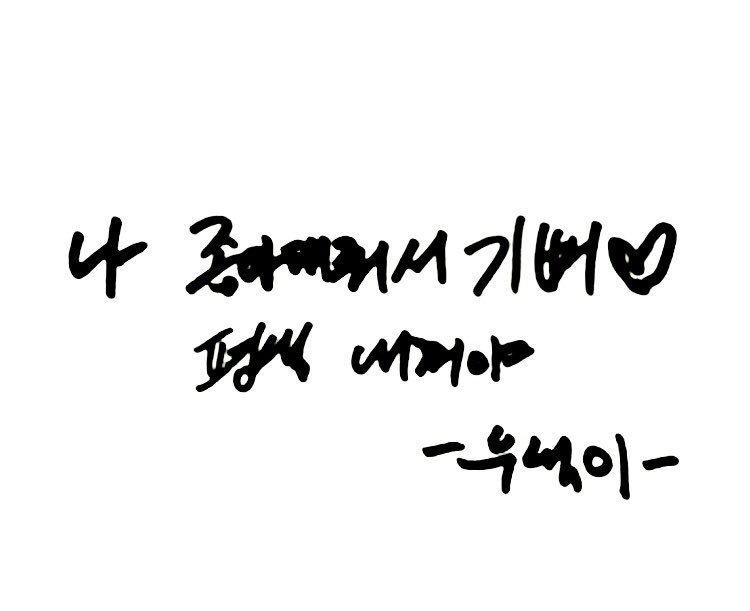 나 좋아해줘서 기뻐♡
평생 내꺼야
-우넉이-